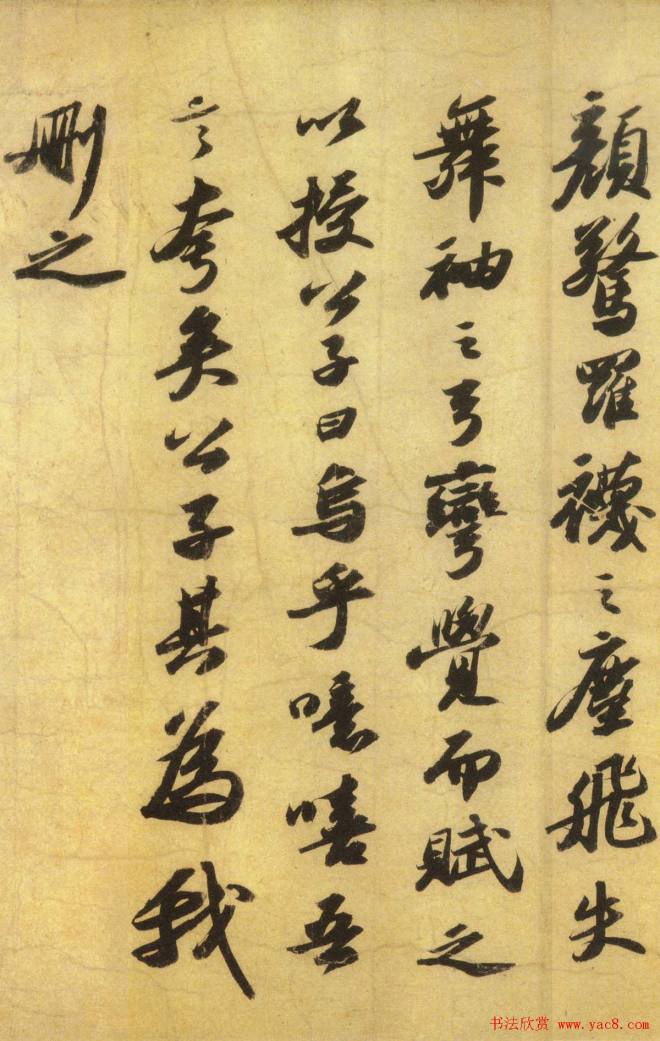 顔驚羅襪之塵飛失
舞袖之弓彎覺而賦之
以授公子曰烏乎噫嘻吾
言夸矣公子其為我
刪之
书法欣赏 www.yac8.com